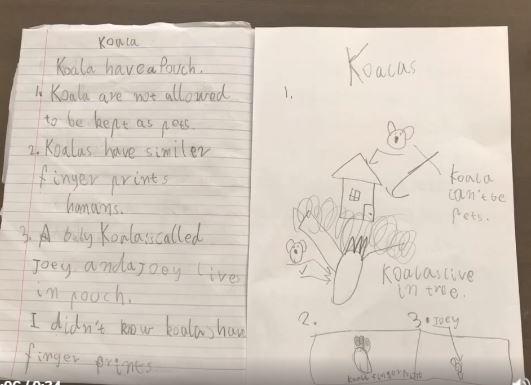 Koala
Koala have a Pouch.
1. Koala are not allowed
to be kept as pets.
2. Koalas have similer
finger prints
humans.
3. A baby Koala is called
Joey and a Joey lives
in pouch.
I didn't know koalas have
finger prints
Koalas
1.
Koala
can't be
Pets.
Koalas live
in tree.
2.
3. Joey
Koala finger prints